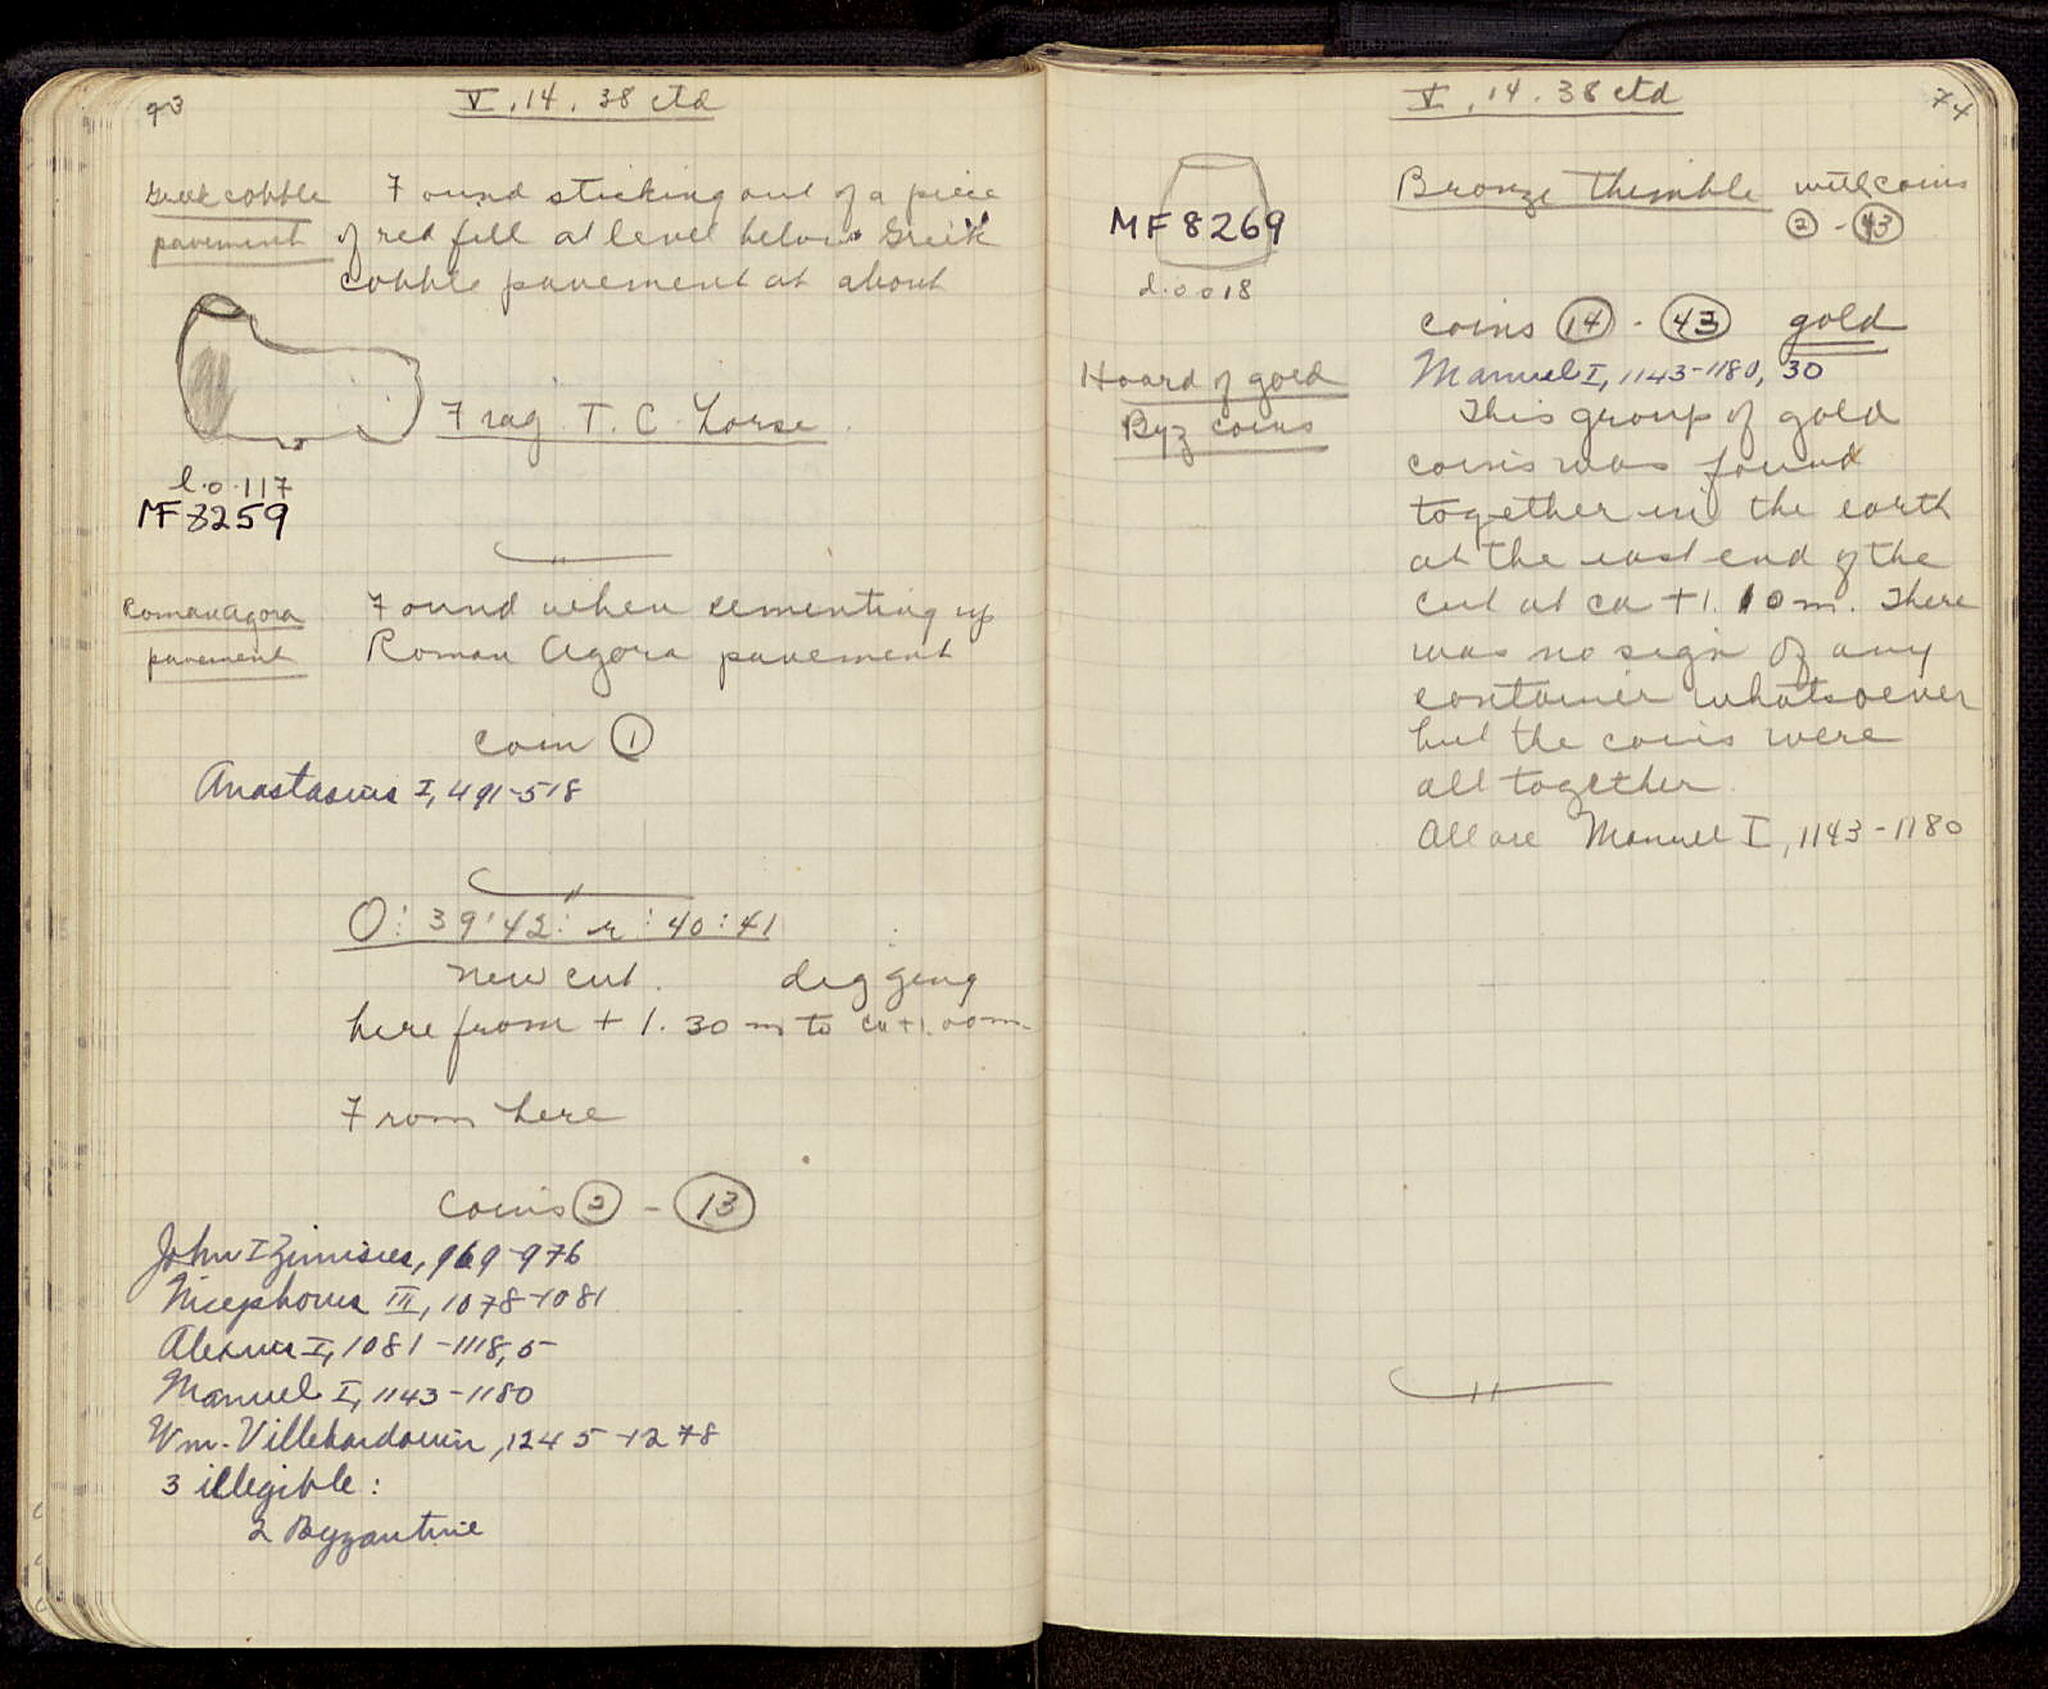 73
V, 14. 38 ctd
Greek cobble
pavement
Found sticking out of a piece
of red fill at level below Greek
cobble pavement at about
Frag. T. C. Horse.
l. 0.117
MF 8259
Roman Agora
pavement
Found when cementing up
Roman Agora pavement
coin 1
Anastasius I, 491-518
O: 39:42: r: 40:41
new cut. digging
here from + 1.30 m to ca +1.00m.
From here
coins 2 - 13
John I Zimisces, 969-976
Nicephorus III, 1078-1081
Alexius I, 1081-1118, 5
Manuel I, 1143-1180
Wm. Villehardouin, 1245-1278
3 illegible:
2 Byzantine
V, 14. 38 ctd
74
MF 8269
d. 0.018
Bronze thimble with coins
2 - 43
coins 14 - 43 gold
Manuel I, 1143-1180, 30
Hoard of gold
Byz coins
This group of gold
coins was found
together in the earth
at the east end of the
cut at ca +1.10 m. There
was no sign of any
container whatsoever
but the coins were
all together.
All are Manuel I, 1143-1180